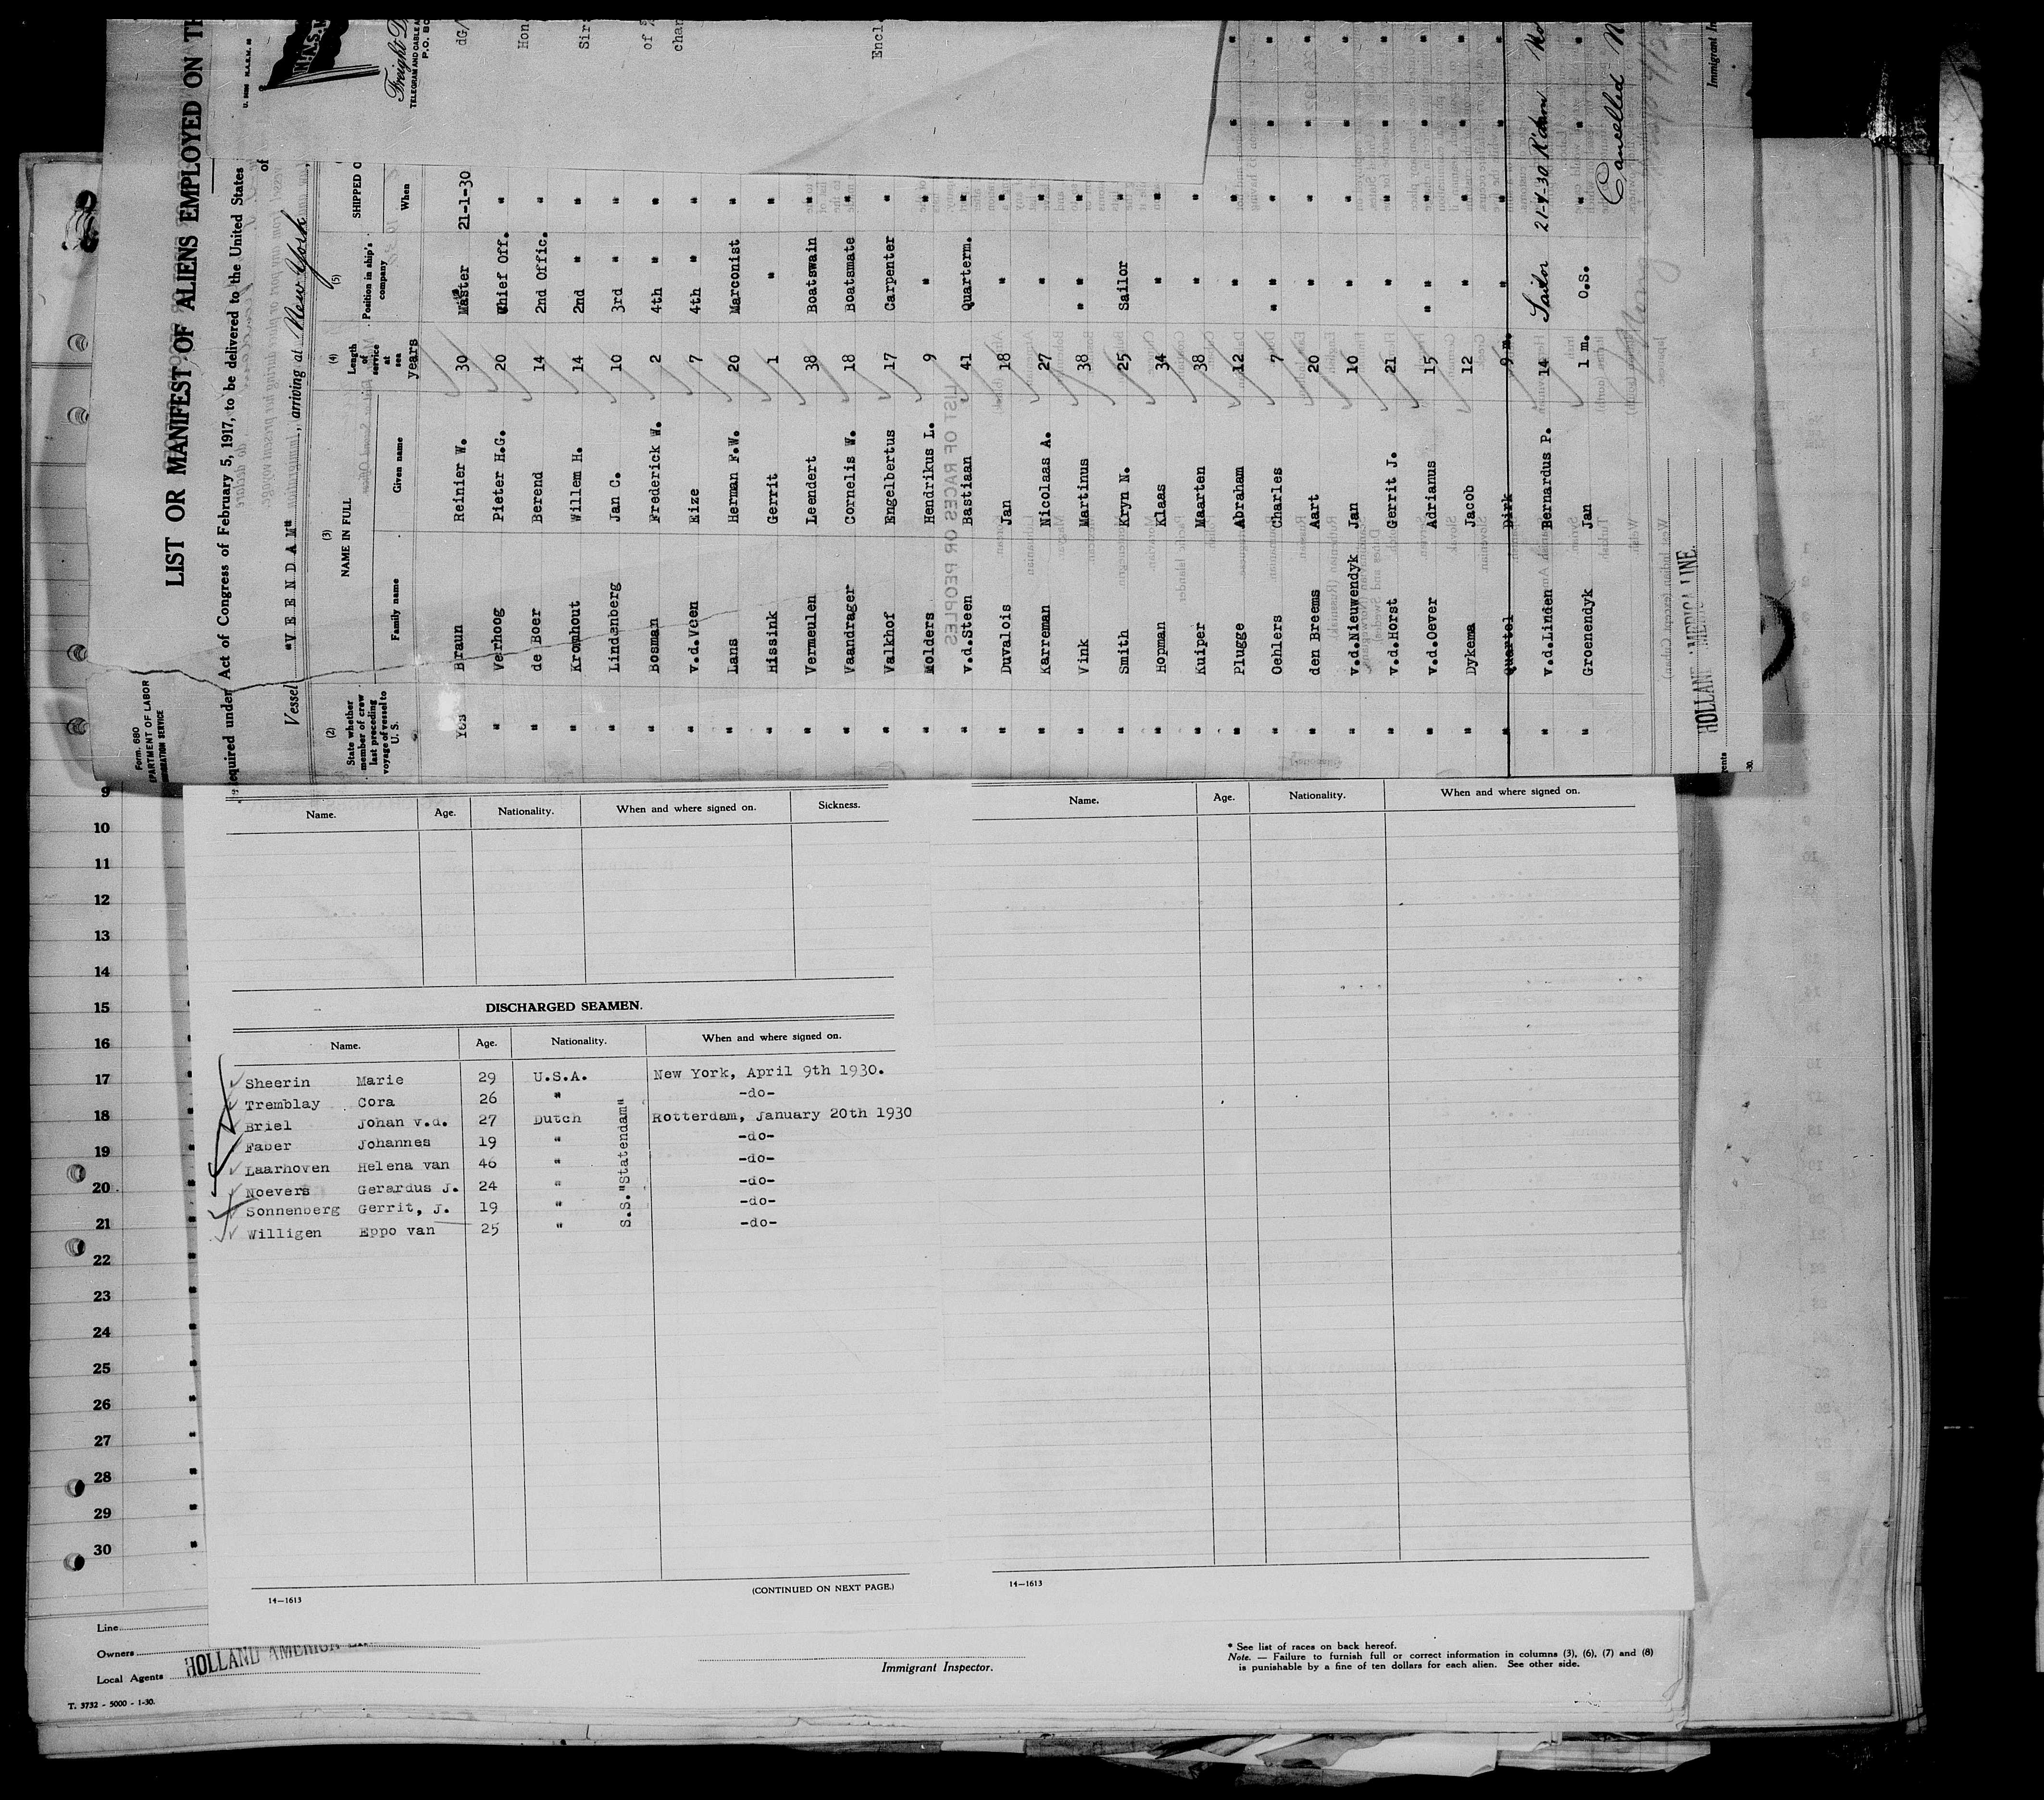 LIST OR MANIFEST OF ALIENS EMPLOYED ON
Required under Act of Congress of February 5, 1917, to be delivered to the United States
of
Form 680
DEPARTMENT OF LABOR
IMMIGRATION SERVICE
Vessel "VEENDAM", arriving at New York
(2) (3) (4) (5)
State whether member of crew last preceding voyage of vessel to U. S.
NAME IN FULL
Family name Given name
Length of service at sea
years
Position in ship's company
SHIPPED
When
Yes Braun Reinier W. 30 Master 21-1-30
" Verhoog Pieter H.G. 20 Chief Off. "
" de Boer Berend 14 2nd Offic. "
" Kromhout Willem H. 14 2nd " "
" Lindenberg Jan C. 10 3rd " "
" Bosman Frederick W. 2 4th " "
" v.d.Veen Eize 7 4th " "
" Lans Herman F.W. 20 Marconist "
" Hissink Gerrit 1 " "
" Vermeulen Leendert 38 Boatswain "
" Vaandrager Cornelis W. 18 Boatsmate "
" Valkhof Engelbertus 17 Carpenter "
" Molders Hendrikus L. 9 " "
" v.d.Steen Bastiaan 41 Quarterm. "
" Duvalois Jan 18 " "
" Karreman Nicolaas A. 27 " "
" Vink Martinus 38 " " "
" Smith Kryn N. 25 Sailor "
" Hopman Klaas 34 " "
" Kuiper Maarten 38 " "
" Plugge Abraham 12 " "
" Oehlers Charles 7 " " "
" den Breems Aart 20 " "
" v.d.Nieuwendyk Jan 10 " "
" v.d.Horst Gerrit J. 21 " "
" v.d.Oever Adrianus 15 " " "
" Dykema Jacob 12 " "
" Quartel Dirk 9 m. " "
" v.d.Linden Bernardus P. 14 Sailor 21-1-30 R'dam
" Groenendyk Jan 1 m. O.S. "
Cancelled
HOLLAND AMERICA LINE.
Immigrant In
Freight D
TELEGRAM AND CABLE A
P.O. BO
dG/
Hon
Sir
of
chan
Encl
LIST OF RACES OR PEOPLES
Name. Age. Nationality. When and where signed on. Sickness.
Name. Age. Nationality. When and where signed on.
DISCHARGED SEAMEN.
Name. Age. Nationality. When and where signed on.
Sheerin Marie 29 U.S.A. New York, April 9th 1930.
Tremblay Cora 26 " -do-
Briel Johan v.d. 27 Dutch Rotterdam, January 20th 1930
Faber Johannes 19 " -do-
Laarhoven Helena van 46 " -do-
Noevers Gerardus J. 24 " -do-
Sonnenberg Gerrit, J. 19 " -do-
Willigen Eppo van 25 " -do-
S.S."Statendam"
14—1613
(CONTINUED ON NEXT PAGE.)
14—1613
9
10
11
12
13
14
15
16
17
18
19
20
21
22
23
24
25
26
27
28
29
30
Line
Owners
Local Agents
HOLLAND AMERICA
Immigrant Inspector.
* See list of races on back hereof.
Note. — Failure to furnish full or correct information in columns (3), (6), (7) and (8)
is punishable by a fine of ten dollars for each alien. See other side.
T. 3732 - 5000 - 1-30.